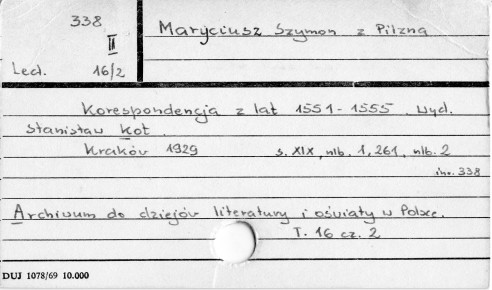 338
II
Lect. 16/2
Marÿciusz Szymon z Pilzna
Korespondencja z lat 1551-1555. Wyd.
Stanisław Kot.
Kraków 1929 s. XIX, nlb. 1, 261, nlb. 2
inw. 338
Archiwum do dziejów literatury i oświaty w Polsce.
T. 16 cz. 2
DUJ 1078/69 10.000